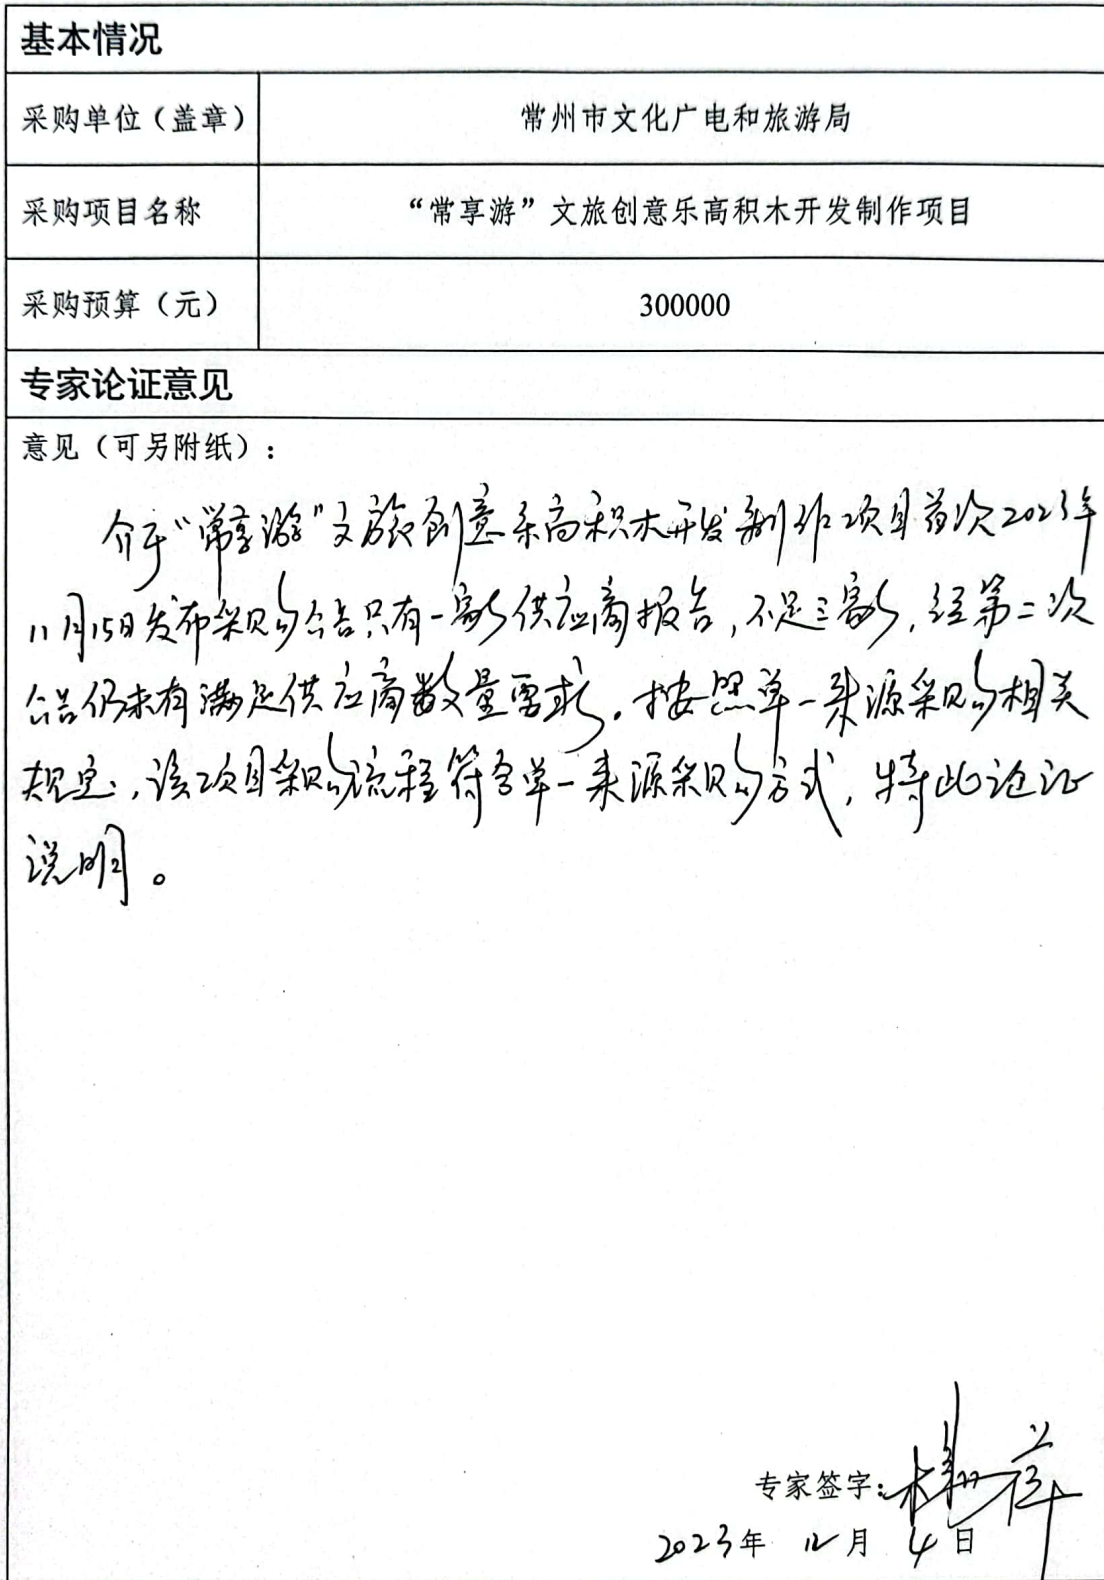 基本情况
采购单位（盖章） 常州市文化广电和旅游局
采购项目名称 “常享游”文旅创意乐高积木开发制作项目
采购预算（元） 300000
专家论证意见
意见（可另附纸）：
介于“常享游”文旅创意乐高积木开发制作项目首次2023年
11月15日发布采购公告只有一家供应商报告，不足三家，经第二次
公告仍未有满足供应商数量要求。按照单一来源采购相关
规定，该项目采购流程符合单一来源采购方式，特此论证
说明。
专家签字：
2023年 12月 4日